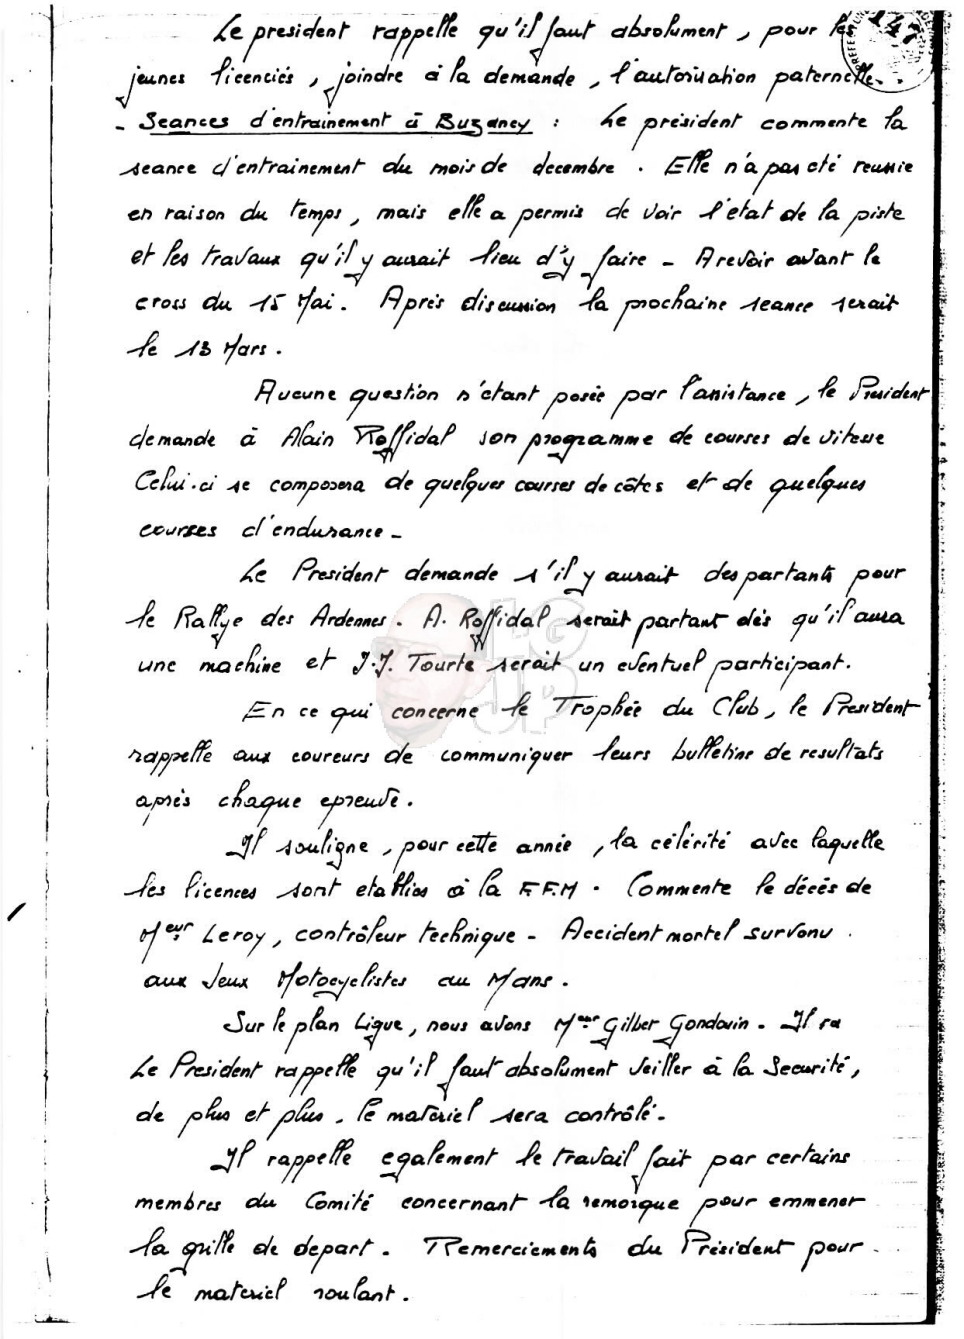 147
Le president rappelle qu'il faut absolument, pour les
jeunes licenciés, joindre à la demande, l'autorisation paternelle.
- Seances d'entrainement à Buzancy : Le président commente la
seance d'entrainement du mois de decembre. Elle n'a pas été reussie
en raison du temps, mais elle a permis de voir l'etat de la piste
et les travaux qu'il y aurait lieu d'y faire - A revoir avant le
cross du 15 Mai. Après discussion la prochaine seance serait
le 13 Mars.
Aucune question n'étant posée par l'assistance, le President
demande à Alain Roffidal son programme de courses de vitesse
Celui-ci se composera de quelques courses de côtes et de quelques
courses d'endurance -
Le President demande s'il y aurait des partants pour
le Rallye des Ardennes. A. Roffidal serait partant dès qu'il aura
une machine et J.J. Tourte serait un eventuel participant.
En ce qui concerne le Trophée du Club, le President
rappelle aux coureurs de communiquer leurs bulletins de resultats
après chaque epreuve.
Il souligne, pour cette année, la célérité avec laquelle
les licences sont etablies à la F.F.M. Commente le décès de
Meur Leroy, contrôleur technique - Accident mortel survenu
aux Jeux Motocyclistes au Mans.
Sur le plan Ligue, nous avons Meur Gilber Gondouin - Il
Le President rappelle qu'il faut absolument veiller à la Securité,
de plus et plus, le materiel sera contrôlé -
Il rappelle egalement le travail fait par certains
membres du Comité concernant la remorque pour emmener
la grille de depart. Remerciements du Président pour
le materiel roulant.
LG
JP